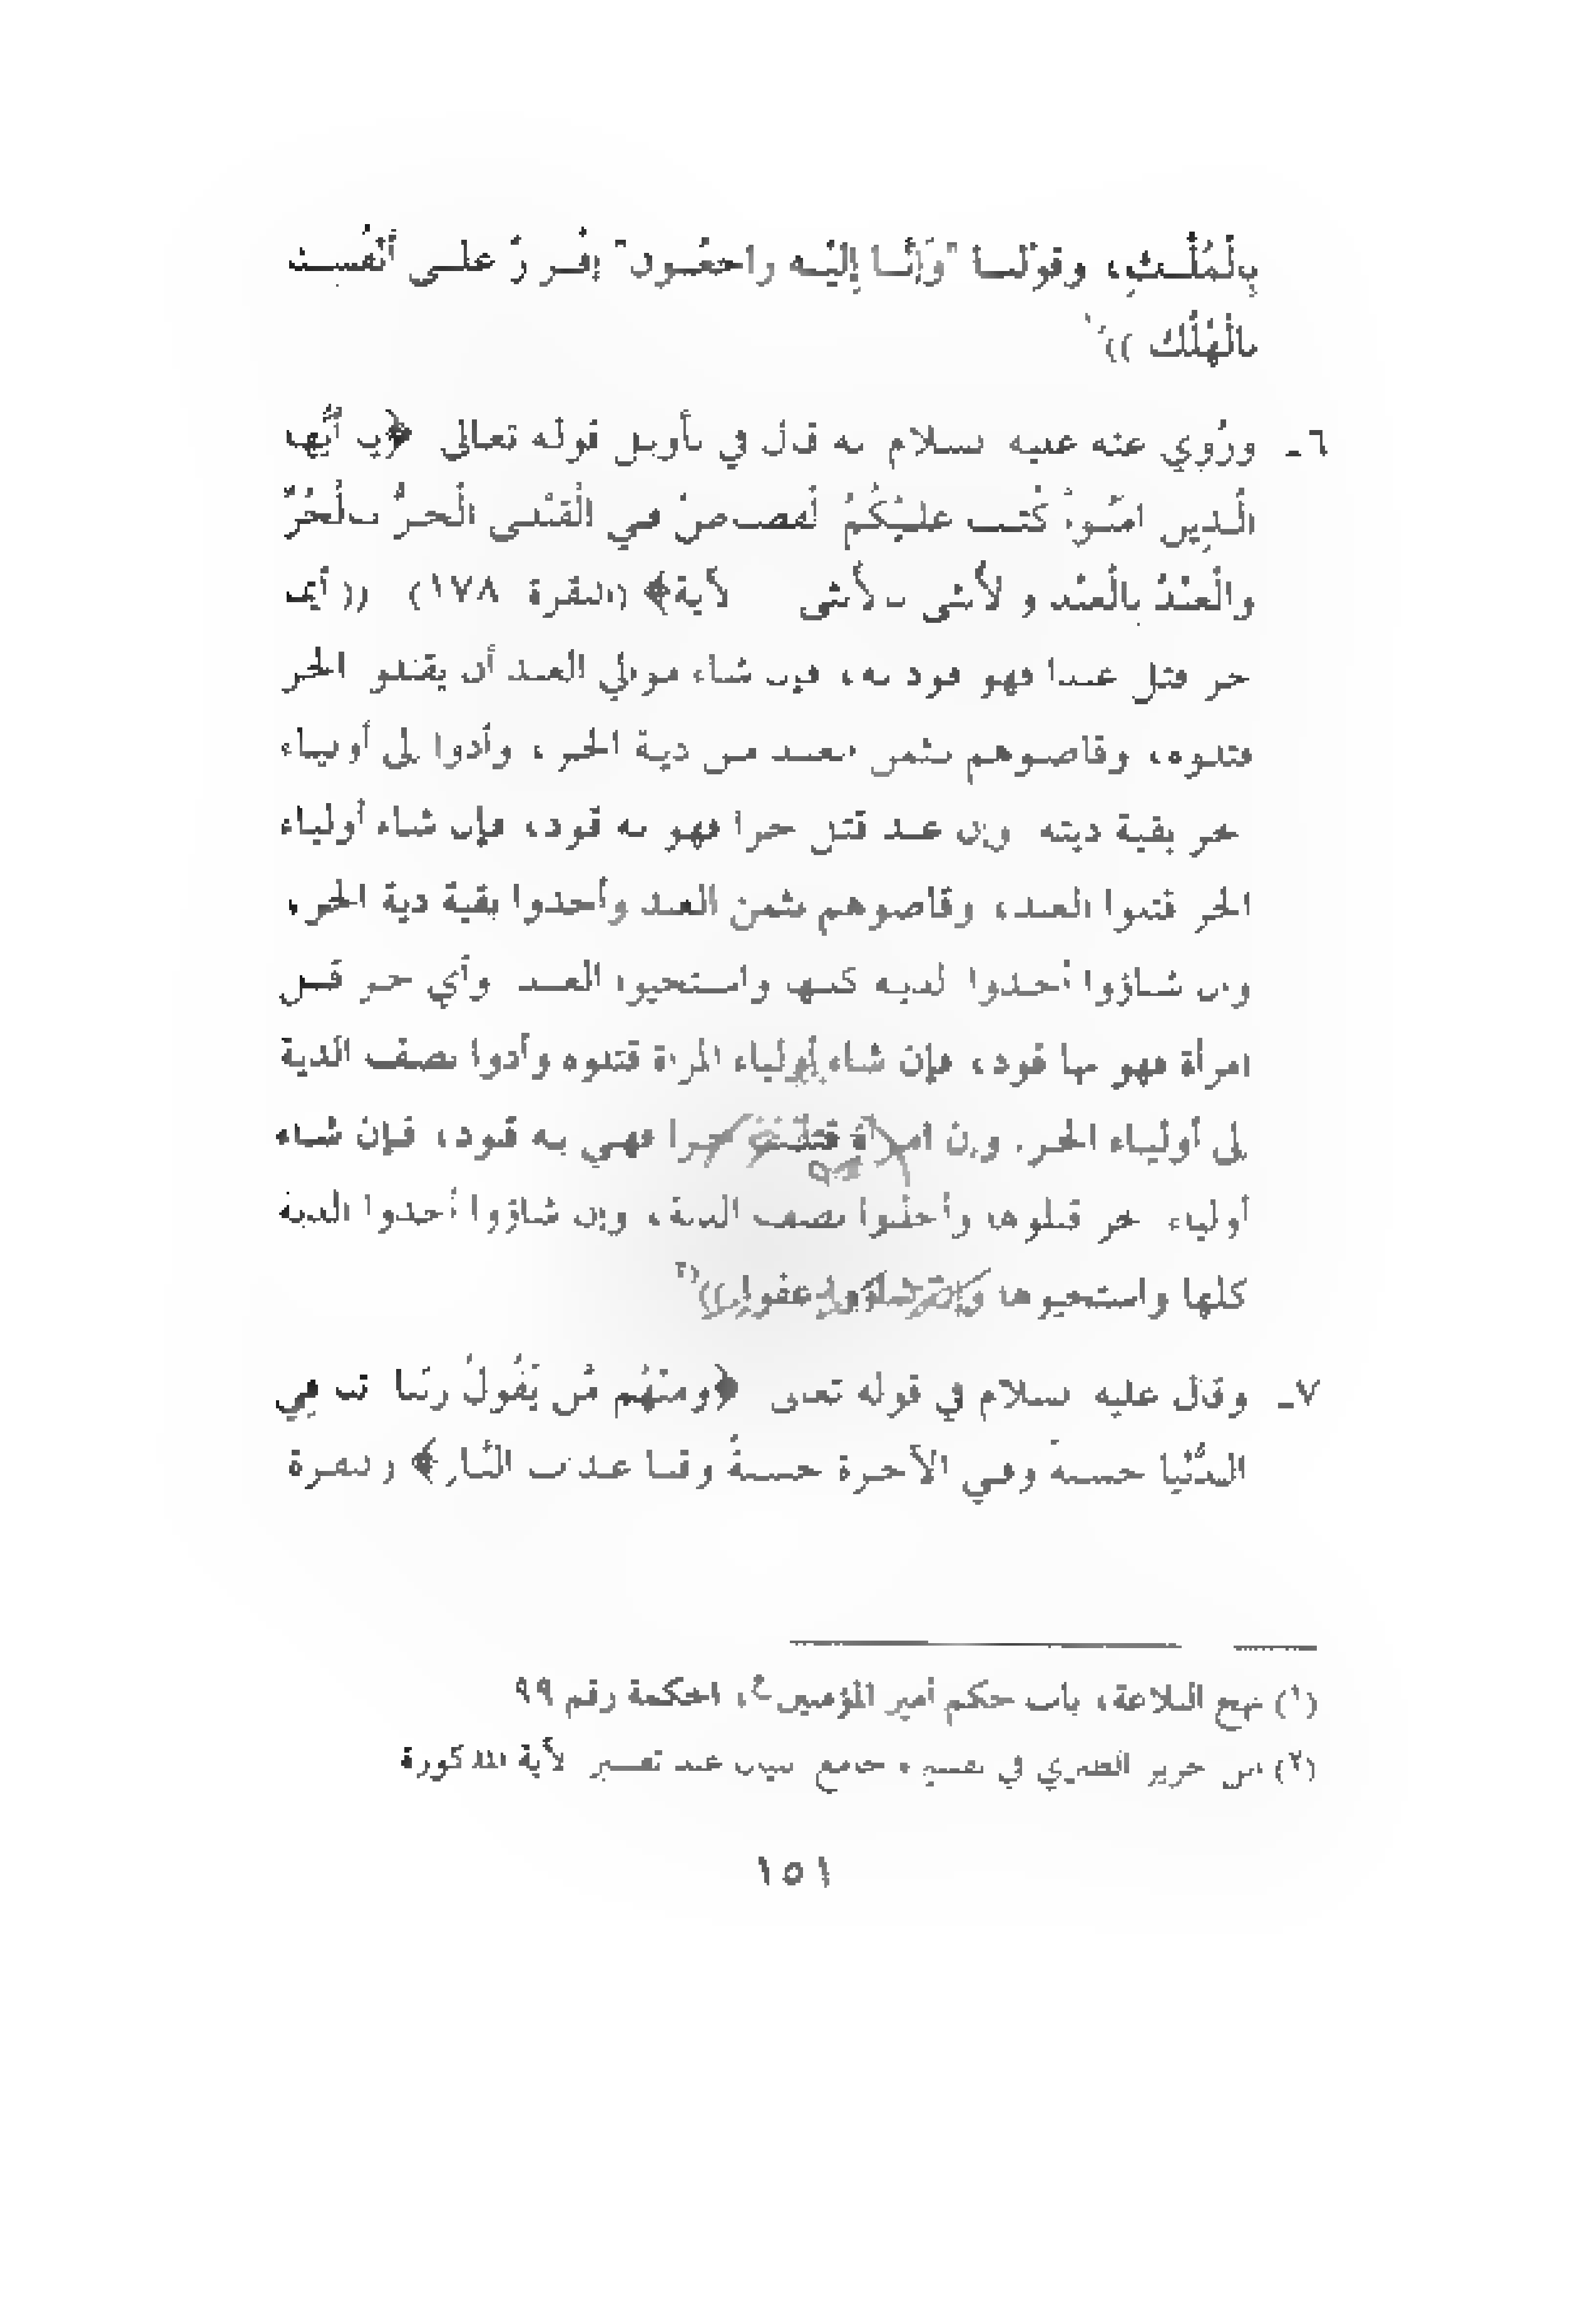 بِالْمُلْـكِ، وقوْلنـا "وَإنَّـا إليْـه راجعُـون" إقْـرارٌ علـى أنْفُسِـنا
بالْهُلْك ))(١)
٦ـ ورُوي عنه عليه السلام انه قال في تأويل قوله تعالى ﴿يا أيُّها
الَّـذِين امنُـوا كُتـب عليْـكُمُ الْقصـاصُ فـي الْقتْلـى الْحـرُّ بـالْحُرِّ
والْعبْدُ بالْعبْد والأنثى بالأنثى الآية﴾ (البقرة ١٧٨) ((أيما
حر قتل عبدا فهو قود به، فإن شاء موالي العبد أن يقتلو الحر
قتلوه، وقاصوهم بثمن العبد من دية الحر، وأدوا إلى أولياء
الحر بقية ديته وإن عبد قتل حرا فهو به قود، فإن شاء أولياء
الحر قتلوا العبد، وقاصوهم بثمن العبد وأخذوا بقية دية الحر،
وإن شـاؤوا أخـذوا الديـة كلـها واسـتحيوا العبـد وأي حـر قتـل
امرأة فهو بها قود، فإن شاء أولياء المرأة قتلوه وأدوا نصف الدية
إلى أولياء الحر. وإن امرأة قتلت حرا فهي به قود، فإن شاء
أولياء الحر قتلوها وأخذوا نصف الدية، وإن شاؤوا أخذوا الدية
كلها واستحيوها وإن شاؤوا عفوا))(٢)
٧ـ وقال عليه السلام في قوله تعالى ﴿ومنْهُم مَّن يَقُولُ ربَّنا آتنا فِي
الدُّنْيا حسنةً وفـي الآخرة حسـنةً وقنـا عـذاب النَّـار﴾ (البقـرة
(١) نهج البلاغة، باب حكم أمير المؤمنينع، الحكمة رقم ٩٩
(٢) ابن جرير الطبري في تفسيره جامع البيان عند تفسير الآية المذكورة
١٥١